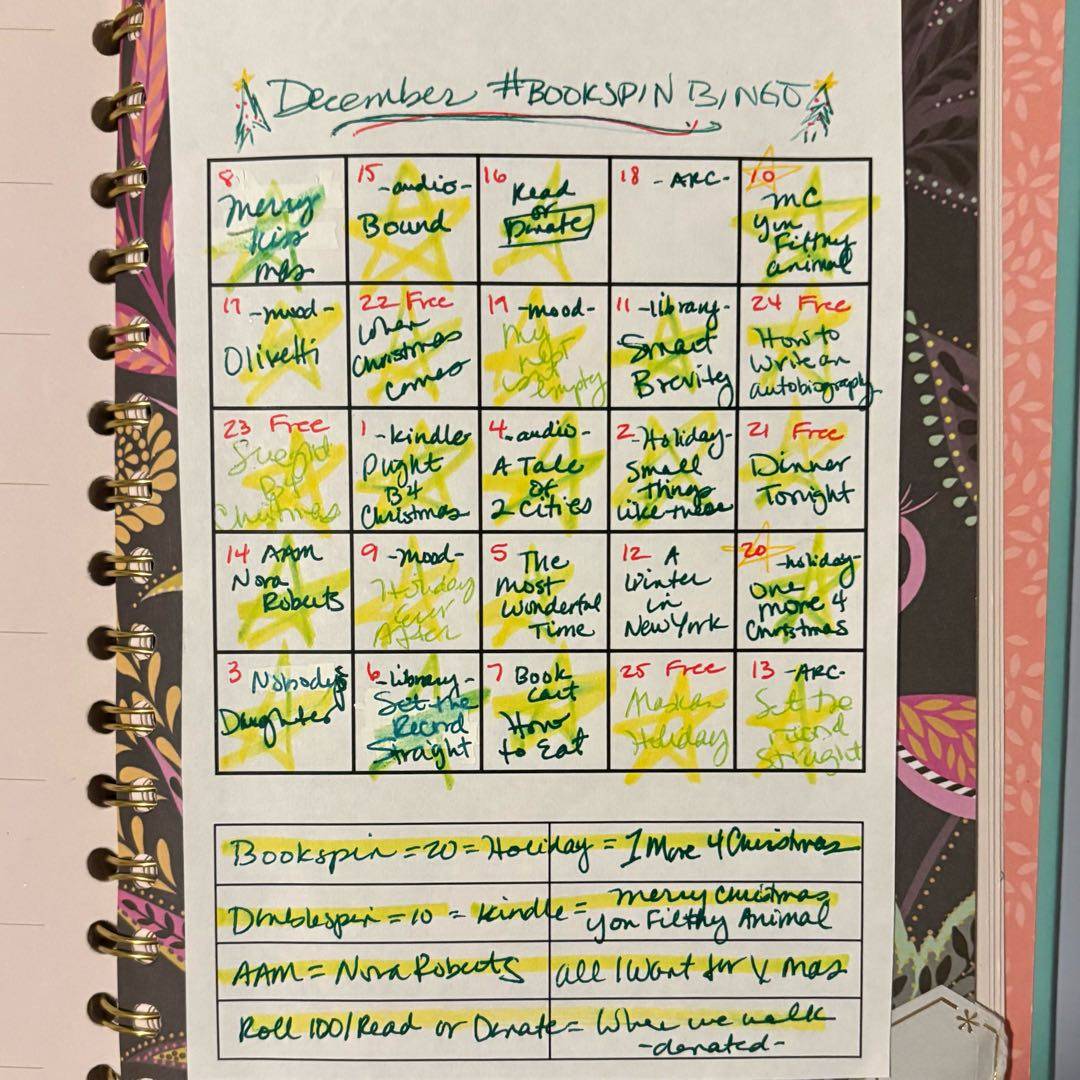 December #BOOKSPIN BINGO
8
Merry
Kiss
mas
15
-audio-
Bound
16
Read
or
Donate
18 -ARC-
10
MC
You
Filthy
animal
17 -mood-
Olivetti
22 Free
When
Christmas
comes
19 -mood-
My
nest
isn't
empty
11 -library-
Smart
Brevity
24 Free
How to
Write an
autobiography
23 Free
By
Christmas
1 -Kindle
Plight
B4
Christmas
4 -audio-
A Tale
of
2 Cities
2 -Holiday-
Small
Things
like these
21 Free
Dinner
Tonight
14 AAM
Nora
Roberts
9 -mood-
Holiday
Ever
After
5 The
most
Wonderful
Time
12 A
Winter
in
New York
20 -holiday-
One
more 4
Christmas
3 Nobody's
Daughter
6 -library-
Set the
Record
Straight
7 Book
Cart
How
to Eat
25 Free
Holiday
13 -ARC-
Set the
record
straight
Bookspin = 20 = Holiday = 1 More 4 Christmas
Doublespin = 10 = Kindle = Merry Christmas
You Filthy Animal
AAM = Nora Roberts all I Want for X mas
Roll 100/Read or Donate = Where we walk
-donated-